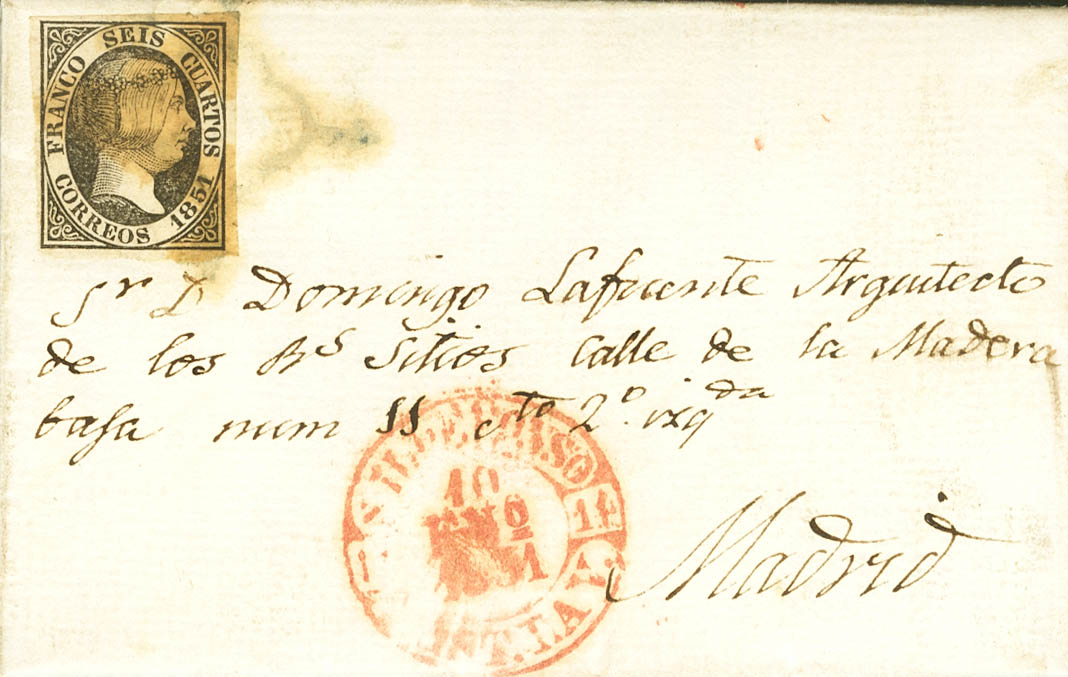 FRANCO SEIS CUARTOS
CORREOS 1851
Sr D Domingo Lafuente Arquitecto
de los Rs Sitios calle de la Madera
baja num 11 cto 2º. izqda
S. ILDEFONSO
10
ENO
Madrid